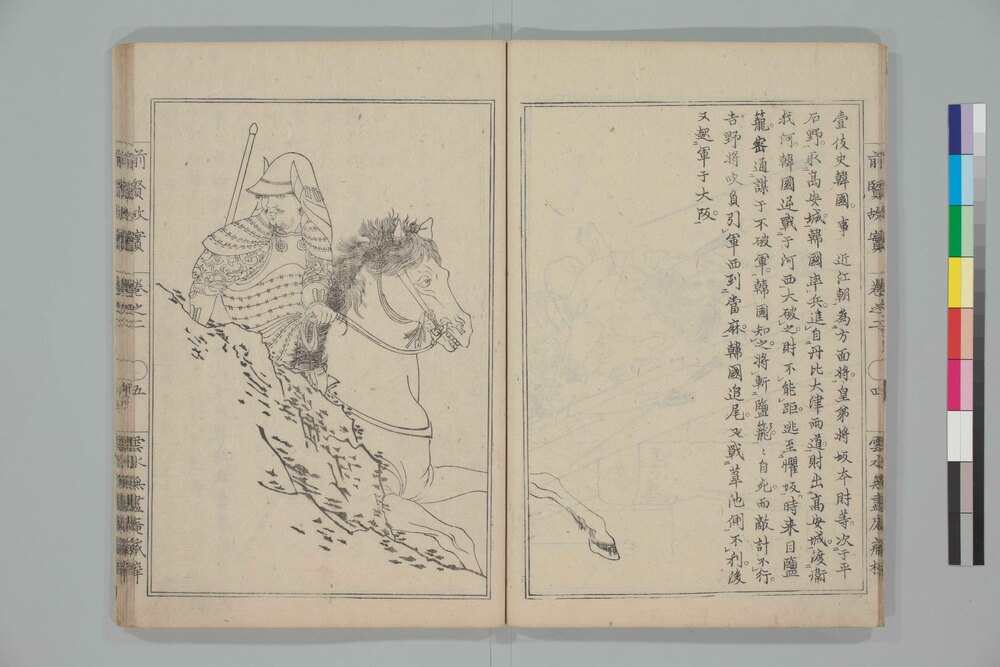 壹伎史韓國。事　近江朝為方面將。皇弟將坂本財等。次于平
石野。取高安城。韓國率兵。進自丹比大津兩道。財出高安城。渡衞
我河。韓國逆戰于河西大破之。財不能距。逃至懼坂。時來目鹽
籠密通謀于不破軍。韓國知之。將斬鹽籠。〻自死。而敵計不行。
吉野將吹負引軍西到當麻。韓國追尾。又戰葦池側不利。後
又遇軍于大阪。
前賢故實
卷之二
四
前賢故實
卷之二
五